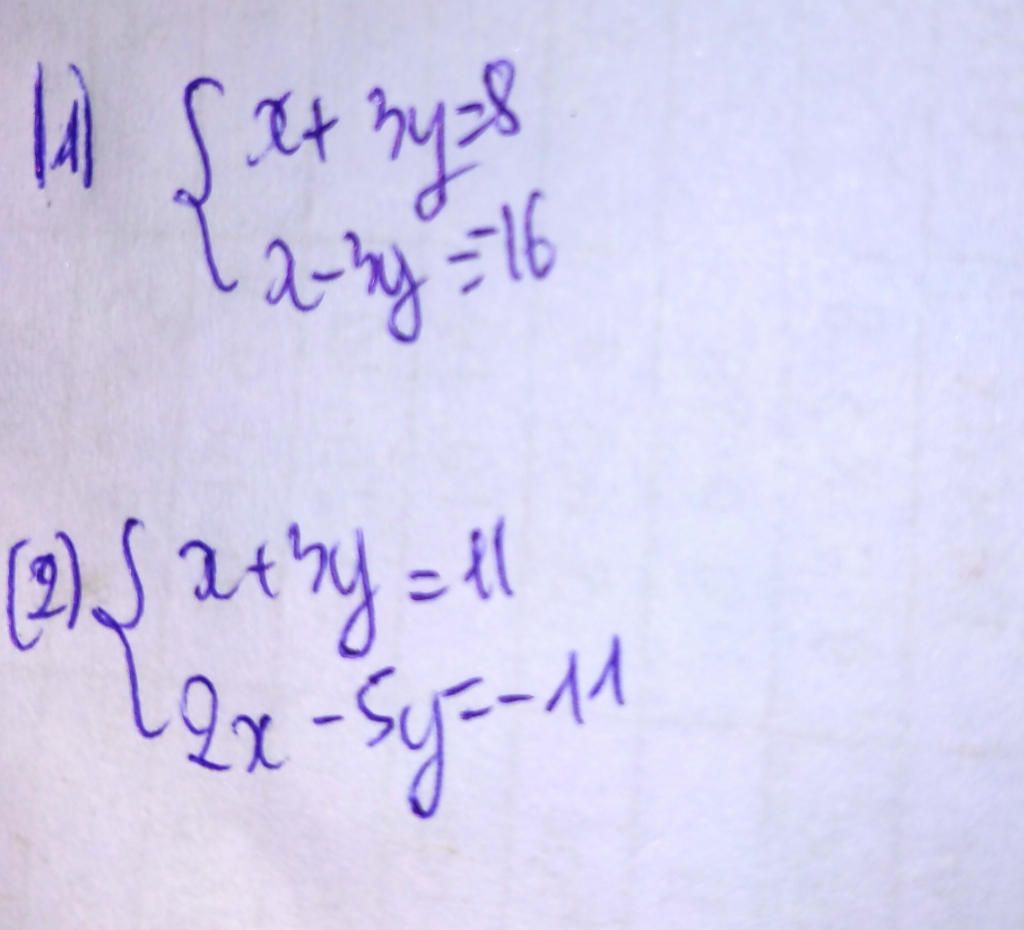 (1) { x + 3y = 8
x - 3y = -16
(2) { x + 3y = 11
2x - 5y = -11